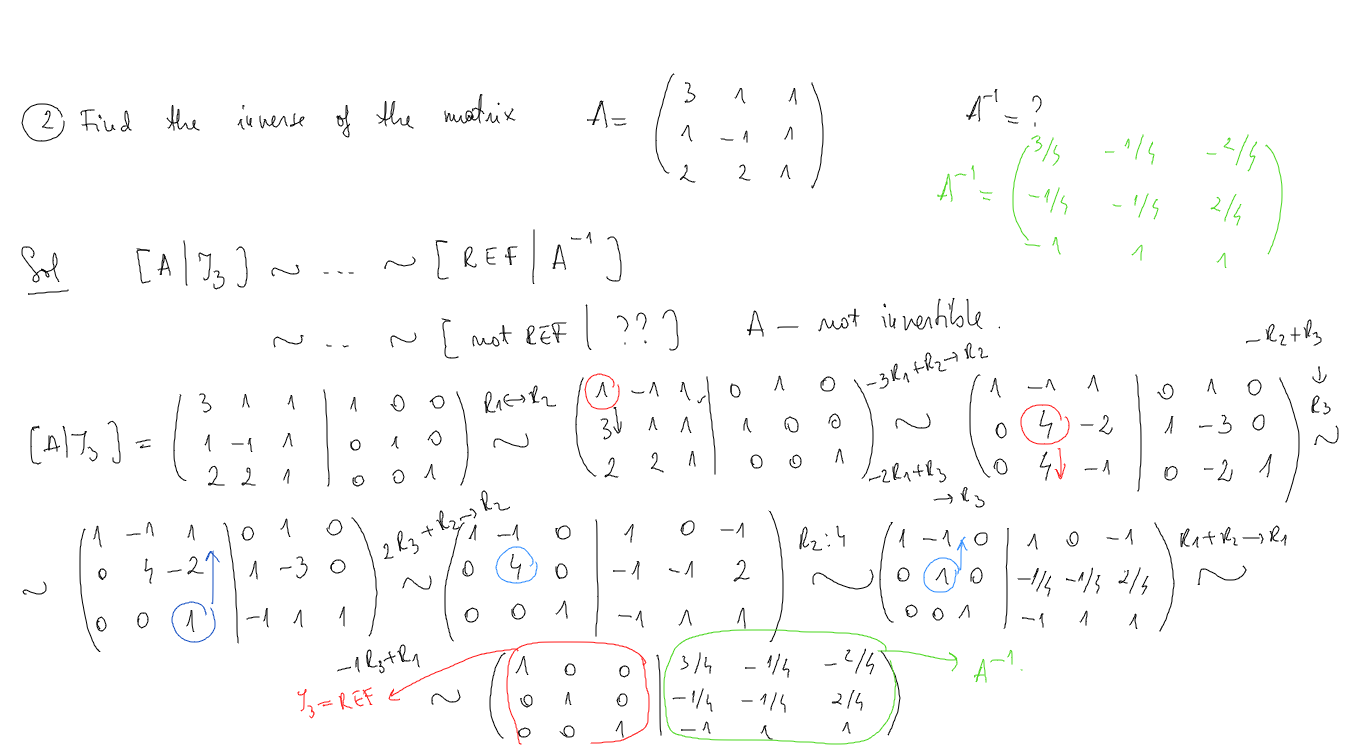 ② Find the inverse of the matrix A = ( 3 1 1 A⁻¹ = ?
1 -1 1
2 2 1 )
A⁻¹ = ( 3/4 -1/4 -2/4
-1/4 -1/4 2/4
-1 1 1 )
Sol [A | I₃] ~ ... ~ [REF | A⁻¹]
~ ... ~ [not REF | ??] A – not invertible.
[A|I₃] = ( 3 1 1 | 1 0 0
1 -1 1 | 0 1 0
2 2 1 | 0 0 1 )
R1↔R2
~
( 1 -1 1 | 0 1 0
3 1 1 | 1 0 0
2 2 1 | 0 0 1 )
-3R1+R2→R2
~
-2R1+R3
→R3
( 1 -1 1 | 0 1 0
0 4 -2 | 1 -3 0
0 4 -1 | 0 -2 1 )
-R2+R3
↓
R3
~
~ ( 1 -1 1 | 0 1 0
0 4 -2 | 1 -3 0
0 0 1 | -1 1 1 )
2R3+R2→R2
~
-1R3+R1
( 1 -1 0 | 1 0 -1
0 4 0 | -1 -1 2
0 0 1 | -1 1 1 )
R2:4
~
( 1 -1 0 | 1 0 -1
0 1 0 | -1/4 -1/4 2/4
0 0 1 | -1 1 1 )
R1+R2→R1
~
I₃ = REF ← ~ ( 1 0 0 | 3/4 -1/4 -2/4
0 1 0 | -1/4 -1/4 2/4
0 0 1 | -1 1 1 )
→ A⁻¹.